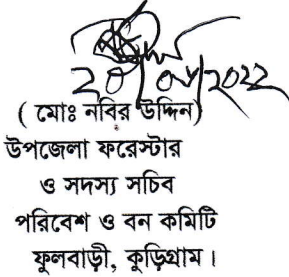 ( মোঃ নবির উদ্দিন)
উপজেলা ফরেস্টার
ও সদস্য সচিব
পরিবেশ ও বন কমিটি
ফুলবাড়ী, কুড়িগ্রাম।